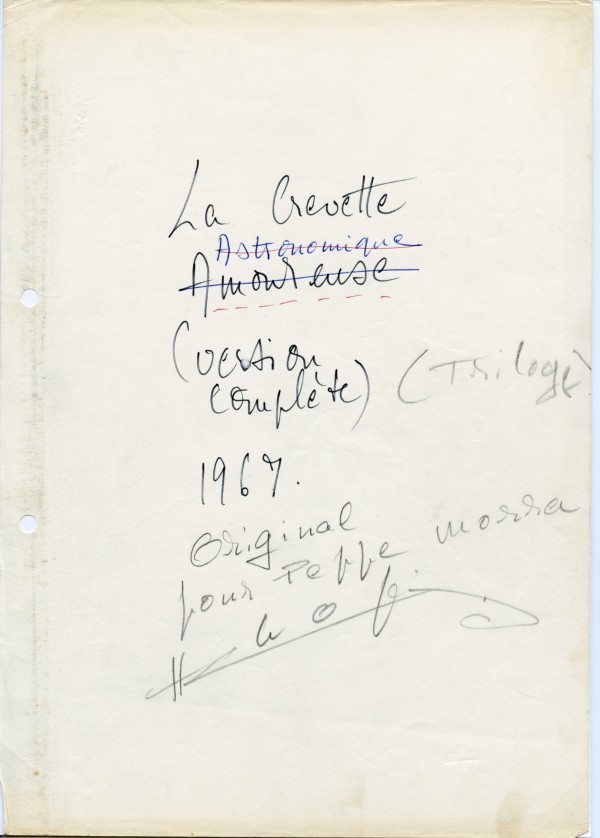 La Crevette
Astronomique
Amoureuse
(version
complète) (Trilogy)
1967.
Original
pour Peppe Morra